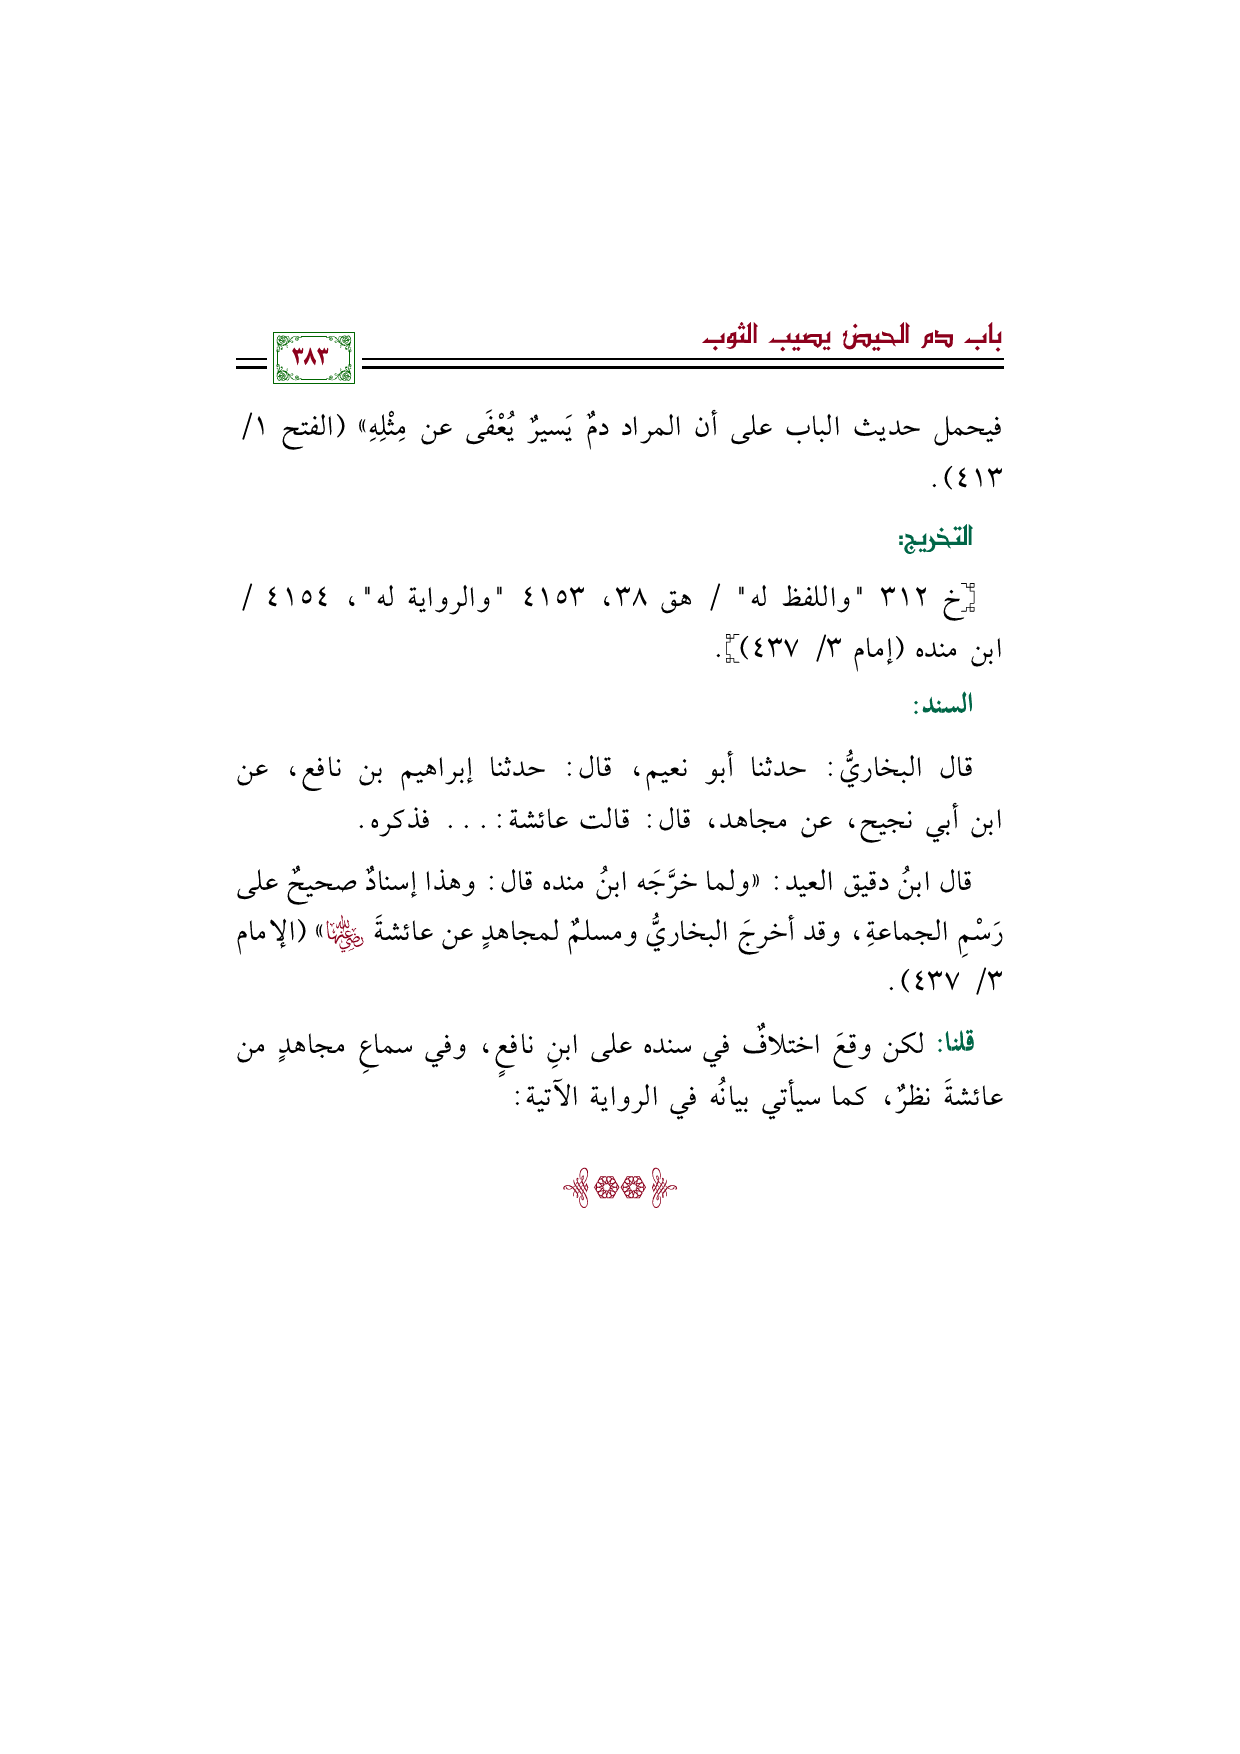 باب دم الحيض يصيب الثوب
٣٨٣
فيحمل حديث الباب على أن المراد دمٌ يَسيرٌ يُعْفَى عن مِثْلِهِ» (الفتح ١/
٤١٣).
التخريج:
[خ ٣١٢ "واللفظ له" / هق ٣٨، ٤١٥٣ "والرواية له"، ٤١٥٤ /
ابن منده (إمام ٣/ ٤٣٧)].
السند:
قال البخاريُّ: حدثنا أبو نعيم، قال: حدثنا إبراهيم بن نافع، عن
ابن أبي نجيح، عن مجاهد، قال: قالت عائشة: ... فذكره.
قال ابنُ دقيق العيد: «ولما خرَّجَه ابنُ منده قال: وهذا إسنادٌ صحيحٌ على
رَسْمِ الجماعةِ، وقد أخرجَ البخاريُّ ومسلمٌ لمجاهدٍ عن عائشةَ رضي الله عنها» (الإمام
٣/ ٤٣٧).
قلنا: لكن وقعَ اختلافٌ في سنده على ابنِ نافعٍ، وفي سماعِ مجاهدٍ من
عائشةَ نظرٌ، كما سيأتي بيانُه في الرواية الآتية: